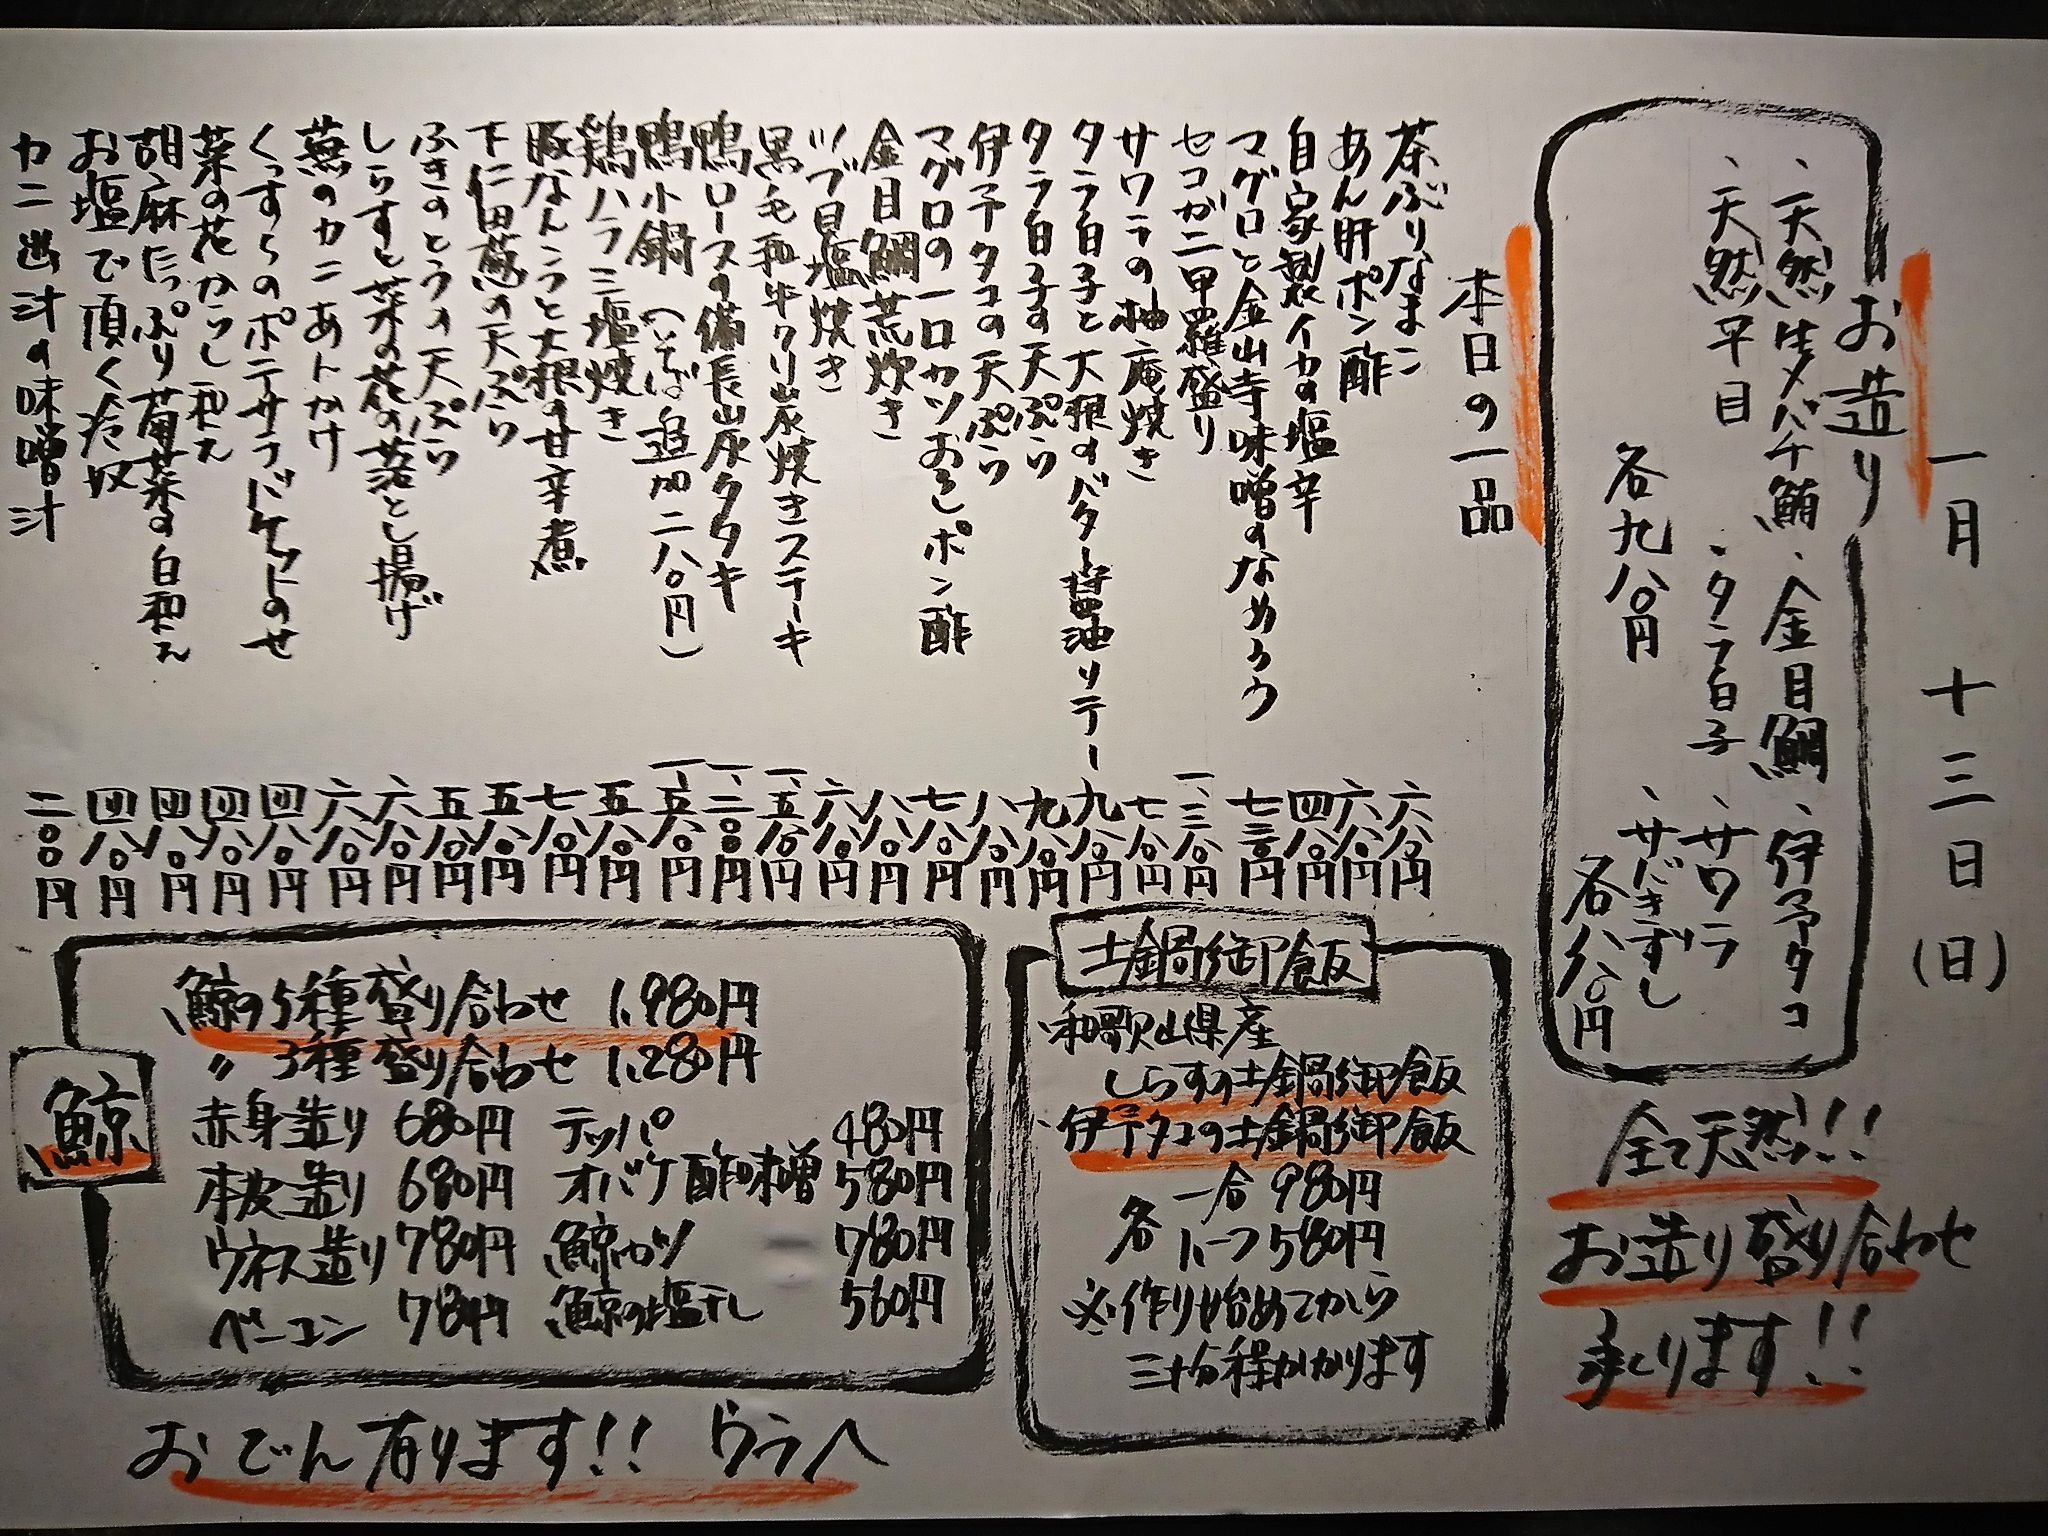 一月 十三日(日)
お造り
、天然生メバチ鮪、金目鯛、伊予タコ
、天然平目、タラ白子、サワラ
、サバきずし
各九八〇円
各八八〇円
全て天然!!
お造り盛り合わせ
承ります!!
本日の一品
茶ぶりなまこ 六八〇円
あん肝ポン酢 六八〇円
自家製イカの塩辛 四八〇円
マグロと金山寺味噌のなめろう 七三〇円
セコガニ甲羅盛り 一、三八〇円
サワラの柚庵焼き 七八〇円
タラ白子と大根のバター醤油ソテー 九八〇円
タラ白子の天ぷら 九八〇円
伊予タコの天ぷら 八八〇円
マグロの一口カツおろしポン酢 七八〇円
金目鯛荒炊き 八八〇円
ツブ貝塩焼き 六八〇円
黒毛和牛クリ炭焼きステーキ 一、五八〇円
鴨ロースの備長炭タタキ 一、二〇〇円
鴨小鍋(そば追加二八〇円) 一、五八〇円
鶏ハラミ塩焼き 五八〇円
豚なんこつと大根の甘辛煮 七八〇円
下仁田葱の天ぷら 五八〇円
ふきのとうの天ぷら 五八〇円
しらすと菜の花の落とし揚げ 六八〇円
蕪のカニあんかけ 六八〇円
くっすらのポテサラバケットのせ 四八〇円
菜の花からし和え 四八〇円
胡麻たっぷり菊菜の白和え 四八〇円
お塩で頂く冷奴 四八〇円
カニ出汁の味噌汁 二〇〇円
土鍋御飯
、和歌山県産
しらすの土鍋御飯
、伊予タコの土鍋御飯
各 一合 980円
ハーフ 580円
※作り始めてから
三十分程かかります
鯨
、鯨の5種盛り合わせ 1,980円
〃 3種盛り合わせ 1,280円
赤身造り 680円 テッパ 480円
本皮造り 680円 オバケ酢味噌 580円
ウネス造り 780円 鯨カツ 780円
ベーコン 780円 鯨の塩干し 560円
おでん有ります!! ウラへ